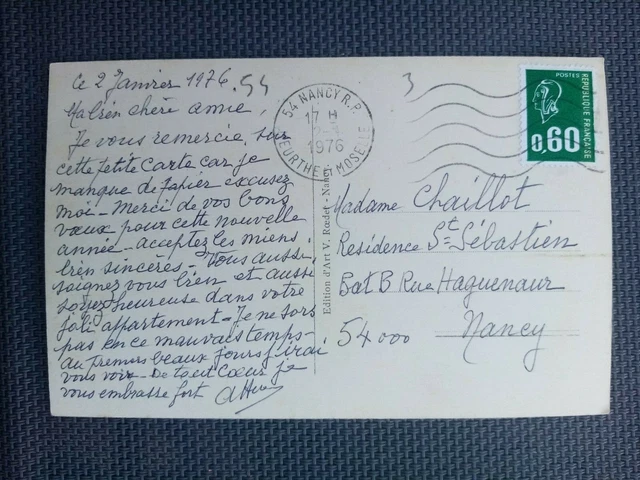 Ce 2 Janvier 1976. 54
Ma bien chère amie,
Je vous remercie, sur
cette petite carte car je
manque de papier excusez
moi - Merci de vos bons
vœux pour cette nouvelle
année - acceptez les miens,
bien sincères - Vous aussi
soignez vous bien et aussi
soyez heureuse dans votre
joli appartement - Je ne sors
pas en ce mauvais temps -
au premiers beaux jours j'irai
vous voir - De tout cœur je
vous embrasse fort
Edition d'Art V. Rœdel - Nancy
54 NANCY R.P.
17 H
1976
MEURTHE ET MOSELLE
3
POSTES
REPUBLIQUE FRANÇAISE
0,60
Madame Chaillot
Résidence St Sébastien
Bat B Rue Haguenaur
54000 Nancy